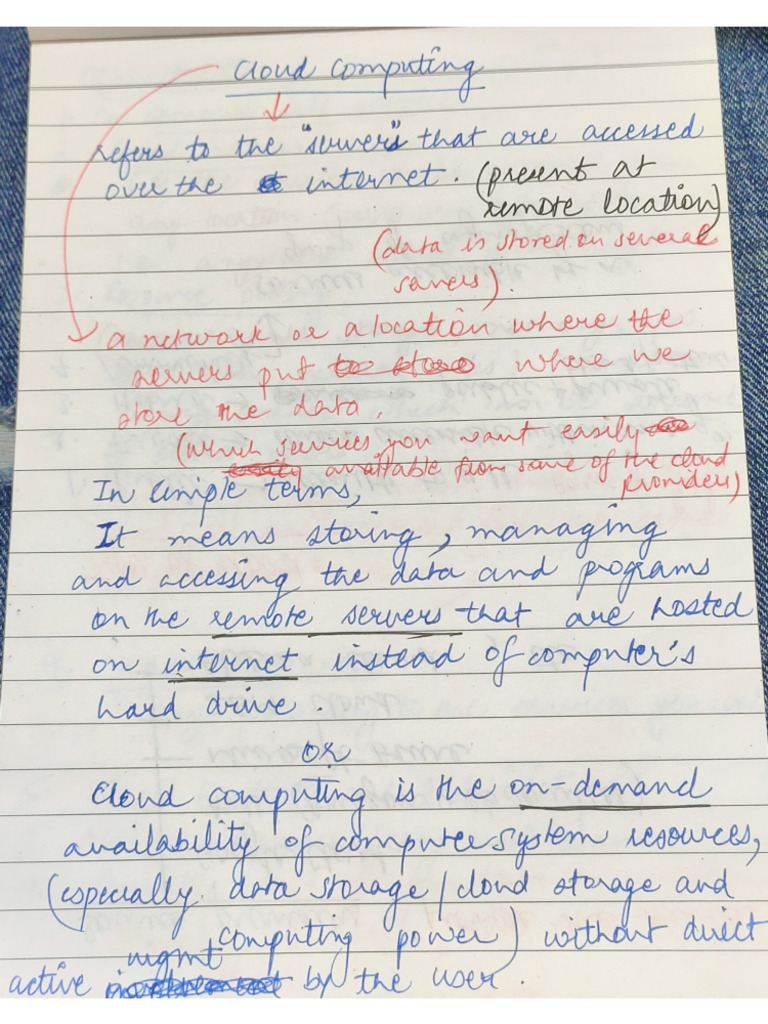 Cloud Computing
refers to the "servers" that are accessed
over the internet. (present at
remote location)
(data is stored on several
servers).
a network or a location where the
servers put where we
store the data.
(which services you want easily
available from some of the cloud
providers)
In simple terms,
It means storing, managing
and accessing the data and programs
on the remote servers that are hosted
on internet instead of computer's
hard drive.
or
Cloud computing is the on-demand
availability of computer system resources,
(especially data storage/cloud storage and
computing power) without direct
active mgmt by the user.